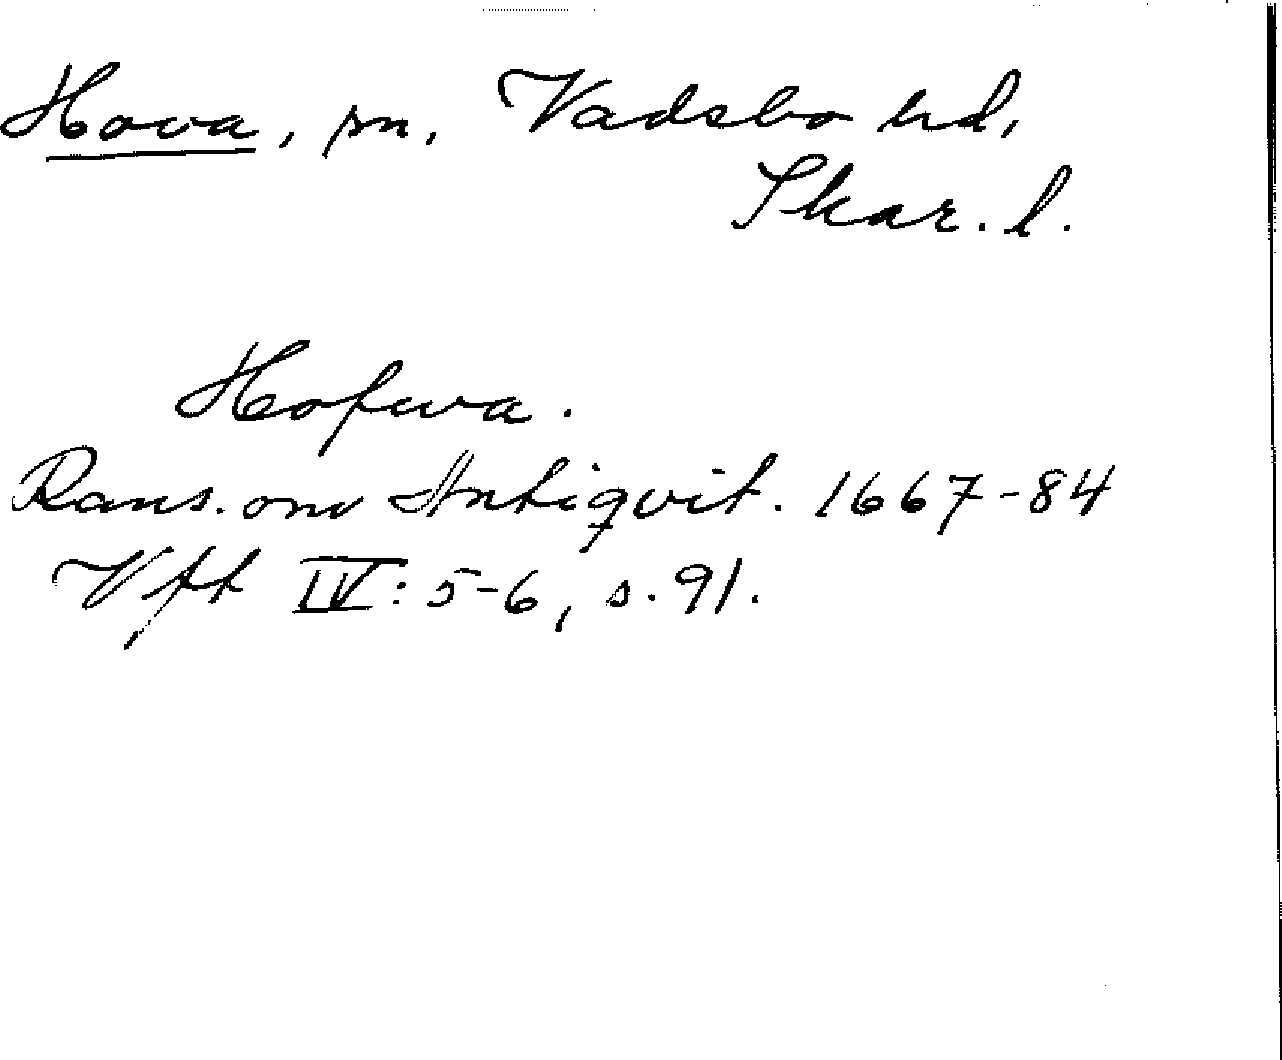 Hova, sn. Vadsbo hd,
Skar. l.
Hofwa.
Rans. om Antiqvit. 1667-84
Vft IV: 5-6, s. 91.